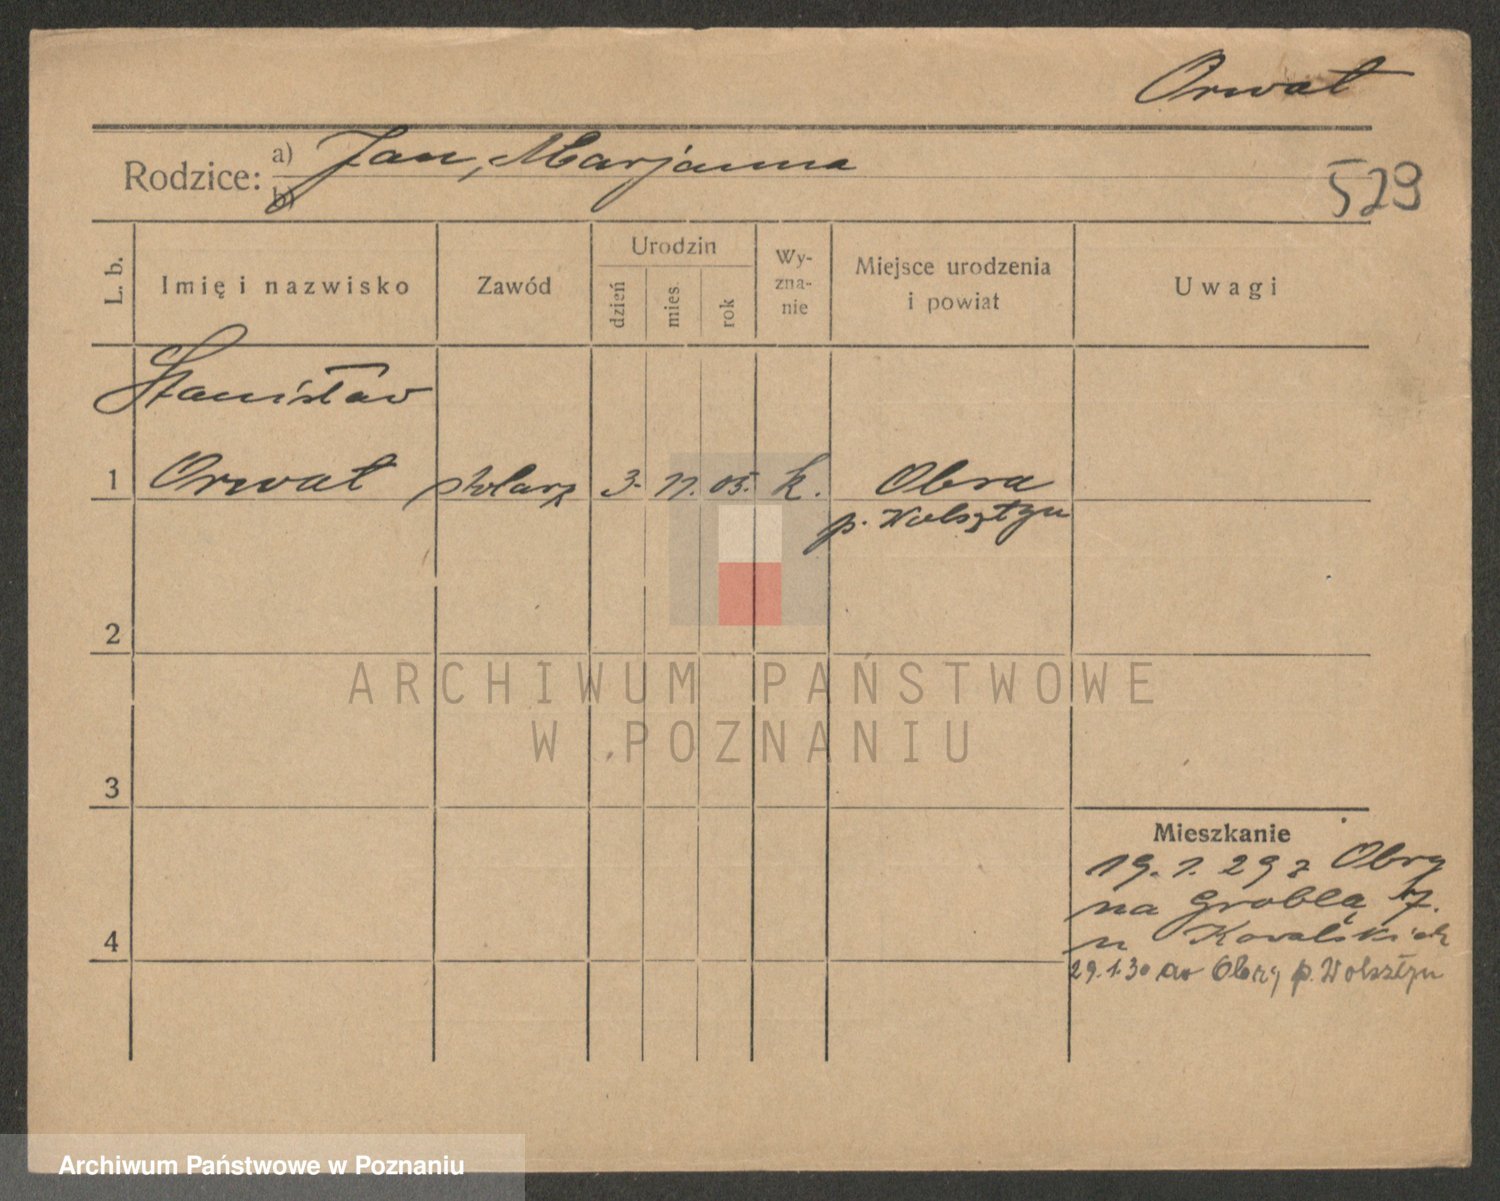 Orwat
Rodzice: a) Jan, Marjanna
b)
529
L. b. Imię i nazwisko Zawód Urodzin dzień mies. rok Wy-zna-nie Miejsce urodzenia i powiat Uwagi
Stanisław
1 Orwat stolarz 3. 11. 05. k. Obra
p. Wolsztyn
2
ARCHIWUM PAŃSTWOWE
W POZNANIU
3
Mieszkanie
19. 1. 29 z Obry
na Groblę 7.
u Kowalskich
4
29.1.30 do Obry p. Wolsztyn
Archiwum Państwowe w Poznaniu